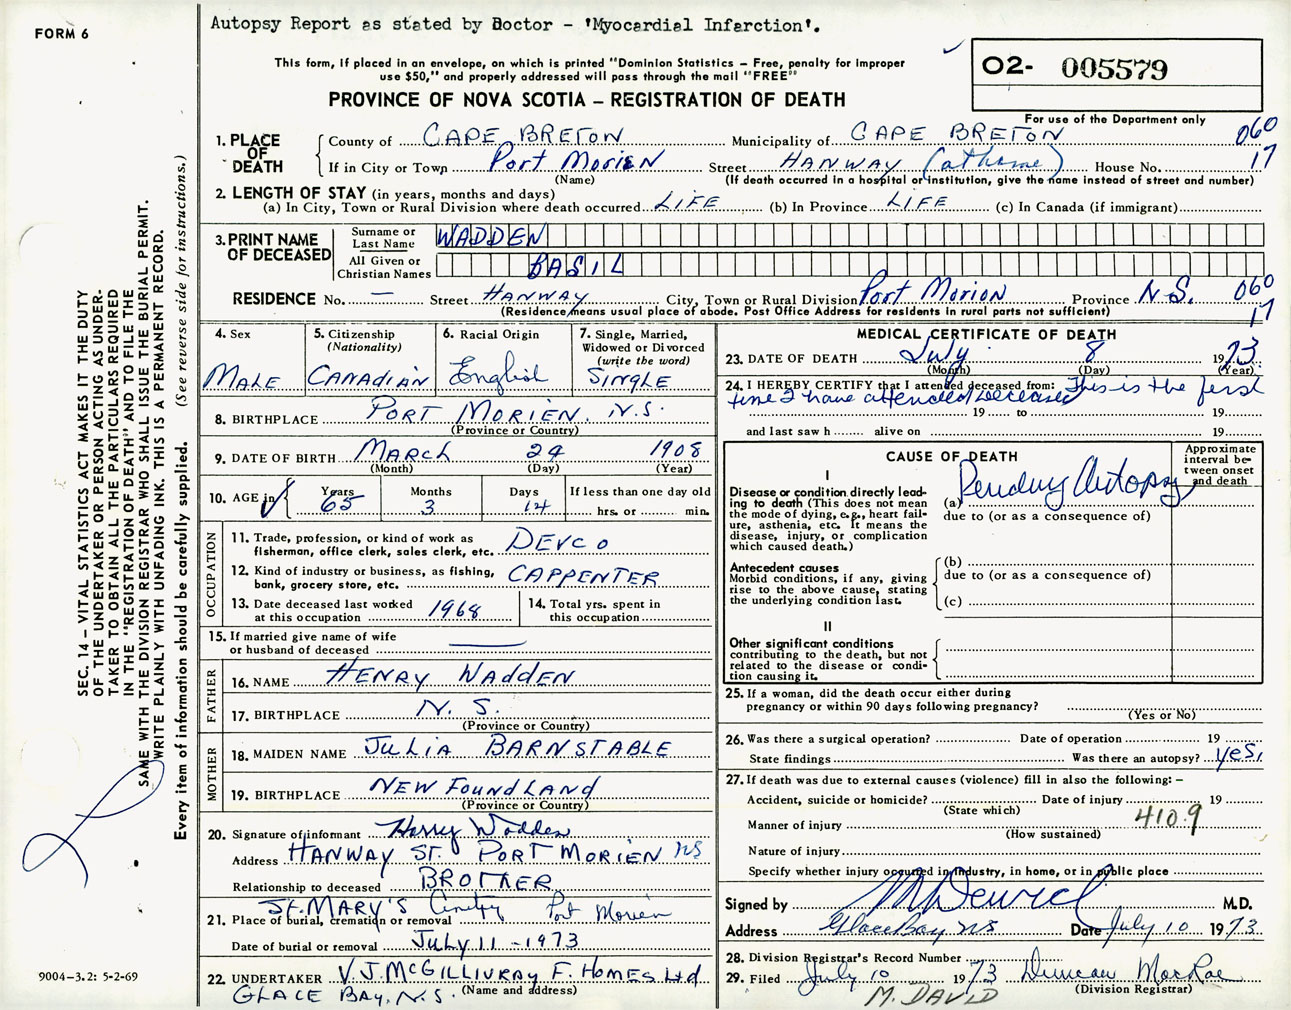 Autopsy Report as stated by Doctor - 'Myocardial Infarction'.
FORM 6
This form, if placed in an envelope, on which is printed "Dominion Statistics – Free, penalty for improper
use $50," and properly addressed will pass through the mail "FREE"
O2- 005579
PROVINCE OF NOVA SCOTIA – REGISTRATION OF DEATH
For use of the Department only
1. PLACE OF DEATH
County of CAPE BRETON Municipality of CAPE BRETON 060
If in City or Town Port Morien Street HANWAY (at home) House No. 17
(Name) (If death occurred in a hospital or institution, give the name instead of street and number)
2. LENGTH OF STAY (in years, months and days)
(a) In City, Town or Rural Division where death occurred LIFE (b) In Province LIFE (c) In Canada (if immigrant)
3. PRINT NAME OF DECEASED
Surname or Last Name WADDEN
All Given or Christian Names BASIL
RESIDENCE No. — Street HANWAY City, Town or Rural Division Port Morion Province N.S. 060
(Residence means usual place of abode. Post Office Address for residents in rural parts not sufficient) 17
4. Sex
MALE
5. Citizenship
(Nationality)
CANADIAN
6. Racial Origin
English
7. Single, Married,
Widowed or Divorced
(write the word)
SINGLE
8. BIRTHPLACE PORT MORIEN, N.S.
(Province or Country)
9. DATE OF BIRTH MARCH 24 1908
(Month) (Day) (Year)
10. AGE in
Years 65
Months 3
Days 14
If less than one day old
hrs. or min.
OCCUPATION
11. Trade, profession, or kind of work as
fisherman, office clerk, sales clerk, etc. DEVCO
12. Kind of industry or business, as fishing,
bank, grocery store, etc. CARPENTER
13. Date deceased last worked
at this occupation 1968
14. Total yrs. spent in
this occupation
15. If married give name of wife
or husband of deceased
FATHER
16. NAME HENRY WADDEN
17. BIRTHPLACE N. S.
(Province or Country)
MOTHER
18. MAIDEN NAME JULIA BARNSTABLE
19. BIRTHPLACE NEW FOUNDLAND
(Province or Country)
20. Signature of informant Harry Wadden
Address HANWAY ST. PORT MORIEN NS
Relationship to deceased BROTHER
ST. MARY'S Port Morien
21. Place of burial, cremation or removal
Date of burial or removal JULY 11 - 1973
22. UNDERTAKER V.J. MCGILLIVRAY F. HOMES Ltd
GLACE BAY, N.S. (Name and address)
MEDICAL CERTIFICATE OF DEATH
23. DATE OF DEATH July 8 1973
(Month) (Day) (Year)
24. I HEREBY CERTIFY that I attended deceased from: This is the first
time I have attended deceased
19 to 19
and last saw h alive on 19
CAUSE OF DEATH
Approximate
interval be-
tween onset
and death
I
Disease or condition directly lead-
ing to death (This does not mean
the mode of dying, e.g., heart fail-
ure, asthenia, etc. It means the
disease, injury, or complication
which caused death.)
(a) Pending Autopsy
due to (or as a consequence of)
Antecedent causes
Morbid conditions, if any, giving
rise to the above cause, stating
the underlying condition last.
(b)
due to (or as a consequence of)
(c)
II
Other significant conditions
contributing to the death, but not
related to the disease or condi-
tion causing it.
25. If a woman, did the death occur either during
pregnancy or within 90 days following pregnancy?
(Yes or No)
26. Was there a surgical operation? Date of operation 19
State findings Was there an autopsy? yes.
27. If death was due to external causes (violence) fill in also the following: –
Accident, suicide or homicide? Date of injury 19
(State which)
Manner of injury 410.9
(How sustained)
Nature of injury
Specify whether injury occurred in industry, in home, or in public place
Signed by M.D.
Address Glace Bay NS Date July 10 1973
28. Division Registrar's Record Number
29. Filed July 10 1973 Duncan MacRae
(Division Registrar)
M. DAVID
SEC. 14 – VITAL STATISTICS ACT MAKES IT THE DUTY
OF THE UNDERTAKER OR PERSON ACTING AS UNDER-
TAKER TO OBTAIN ALL THE PARTICULARS REQUIRED
IN THE "REGISTRATION OF DEATH" AND TO FILE THE
SAME WITH THE DIVISION REGISTRAR WHO SHALL ISSUE THE BURIAL PERMIT.
WRITE PLAINLY WITH UNFADING INK. THIS IS A PERMANENT RECORD.
Every item of information should be carefully supplied. (See reverse side for instructions.)
9004-3.2: 5-2-69